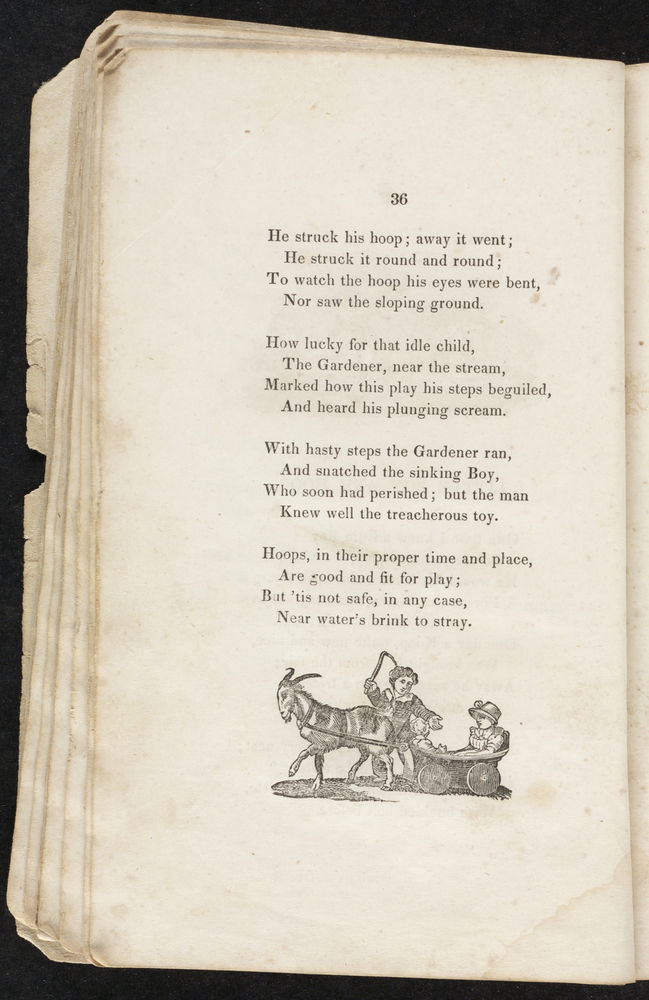 36
He struck his hoop; away it went;
He struck it round and round;
To watch the hoop his eyes were bent,
Nor saw the sloping ground.
How lucky for that idle child,
The Gardener, near the stream,
Marked how this play his steps beguiled,
And heard his plunging scream.
With hasty steps the Gardener ran,
And snatched the sinking Boy,
Who soon had perished; but the man
Knew well the treacherous toy.
Hoops, in their proper time and place,
Are good and fit for play;
But 'tis not safe, in any case,
Near water's brink to stray.